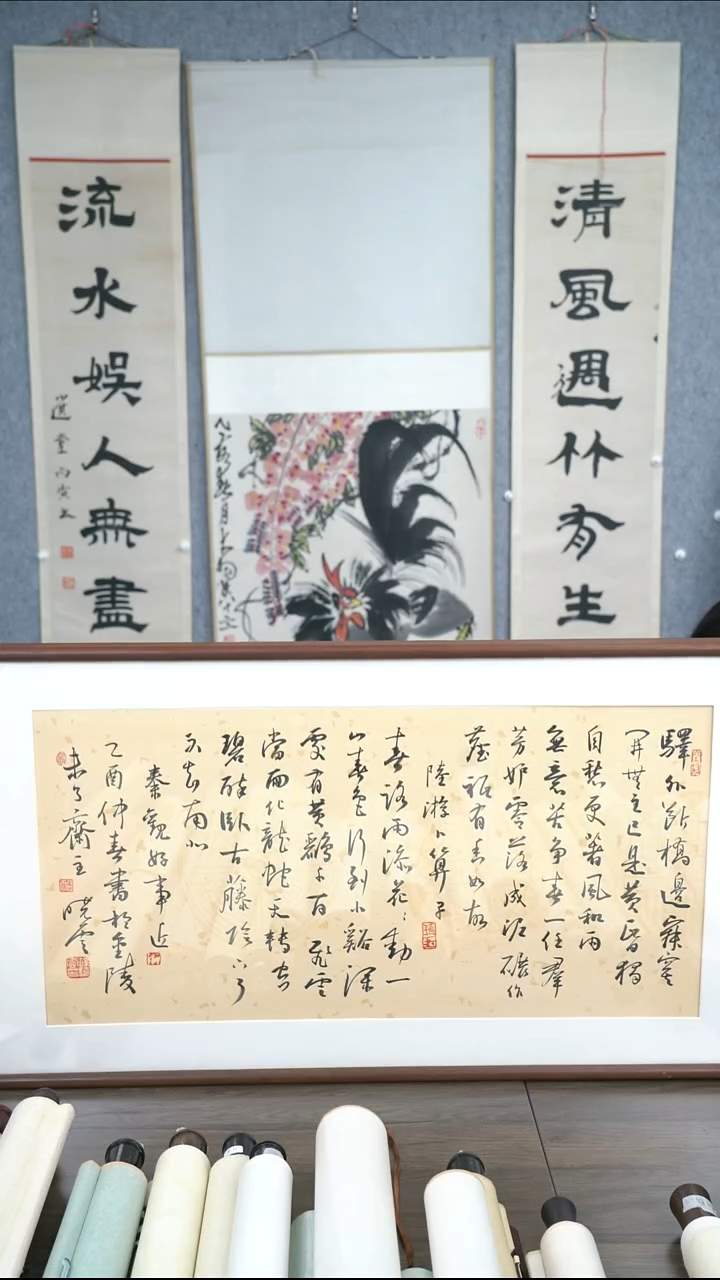 清風週竹有生
流水娛人無盡
選堂丙寅
驛外斷橋邊寂寞
開無主已是黃昏獨
自愁更著風和雨
無意苦爭春一任羣
芳妒零落成泥碾作
塵祗有香如故
陸游卜算子
春路雨添花〻動一
山春色行到小谿深
處有黃鸝千百飛雲
當面化龍蛇夭轉空
碧醉臥古藤陰下了
不知南北
秦觀好事近
乙酉仲春書於金陵
未了齋主曉雲